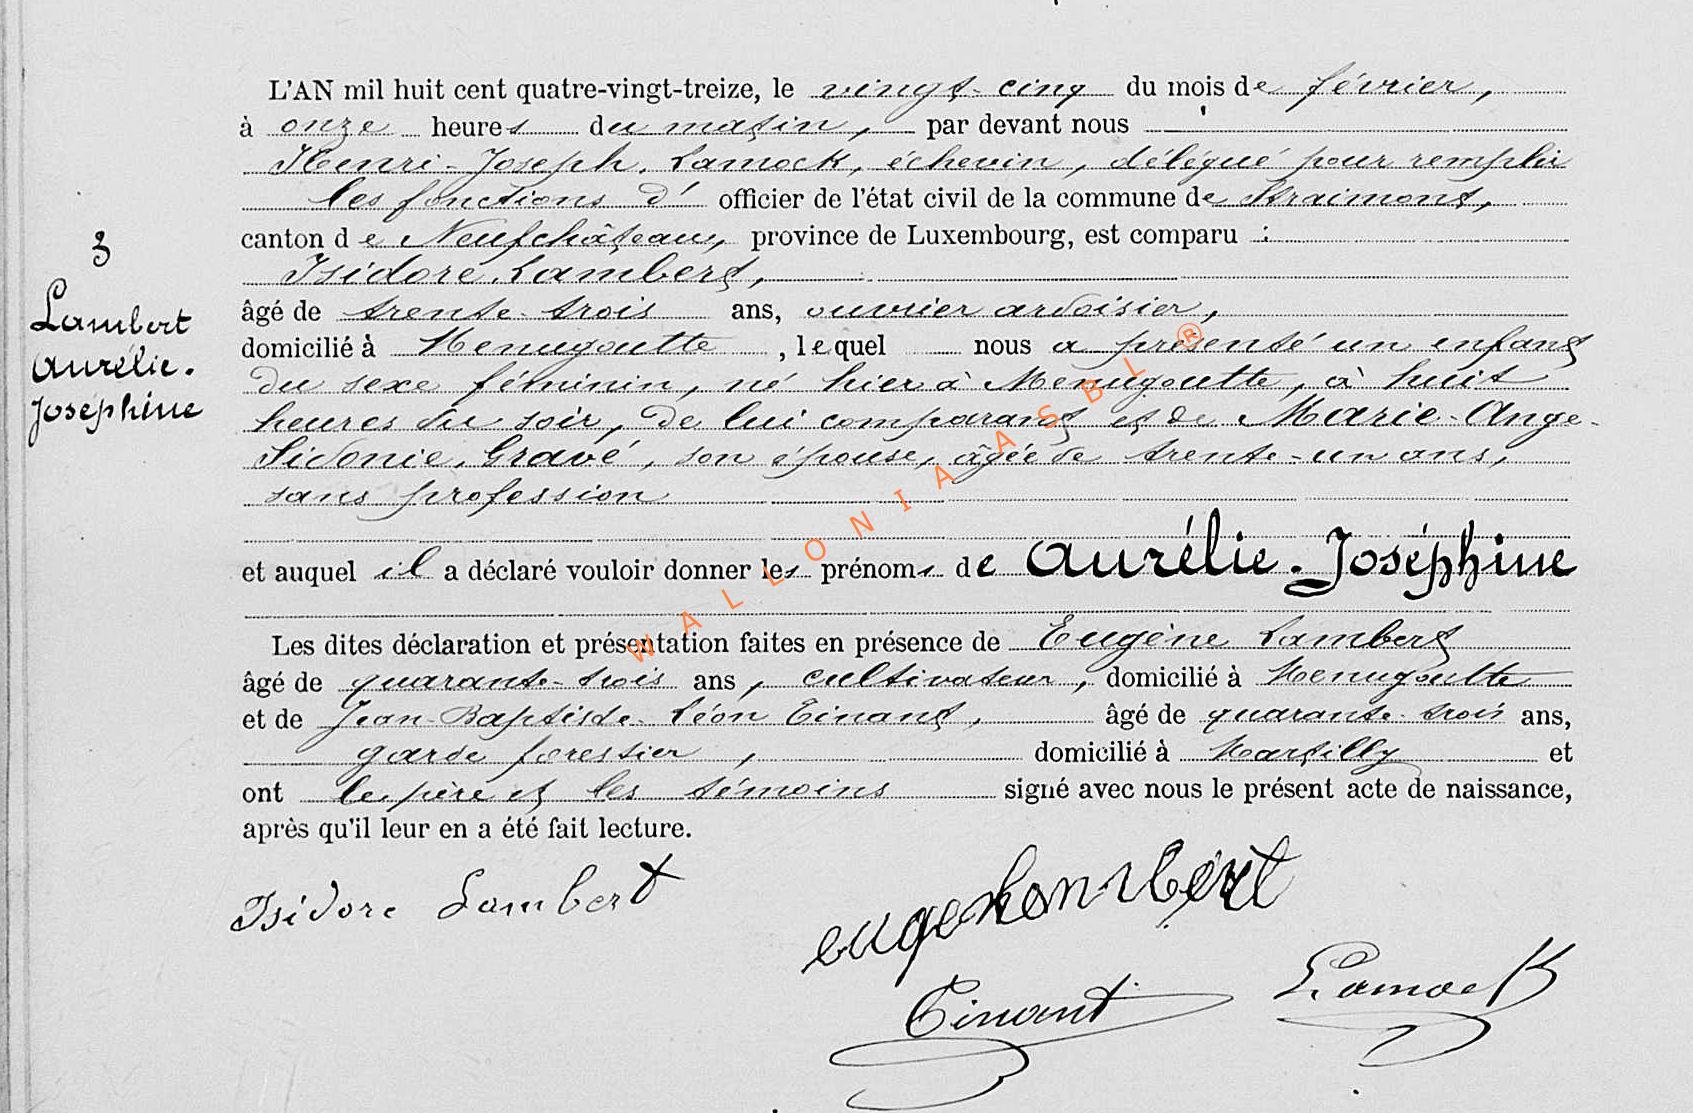 L'AN mil huit cent quatre-vingt-treize, le vingt-cinq du mois de février,
à onze heures du matin, par devant nous
Henri-Joseph Lamock, échevin, délégué pour remplir
les fonctions d' officier de l'état civil de la commune de Straimont,
canton de Neufchâteau, province de Luxembourg, est comparu :
Isidore Lambert,
âgé de trente-trois ans, ouvrier ardoisier,
domicilié à Menugoutte, lequel nous a présenté un enfant
du sexe féminin, né hier à Menugoutte, à huit
heures du soir, de lui comparant et de Marie-Ange-
Sidonie Gravé, son épouse, âgée de trente-un ans,
sans profession
et auquel il a déclaré vouloir donner les prénoms de Aurélie-Joséphine
Les dites déclaration et présentation faites en présence de Eugène Lambert
âgé de quarante-trois ans, cultivateur, domicilié à Menugoutte
et de Jean-Baptiste-Léon Tinant, âgé de quarante-trois ans,
garde forestier, domicilié à Martilly et
ont le père et les témoins signé avec nous le présent acte de naissance,
après qu'il leur en a été fait lecture.
3
Lambert
Aurélie-
Joséphine
Isidore Lambert
Tinant
Lamock
WALLONIA ASBL ®